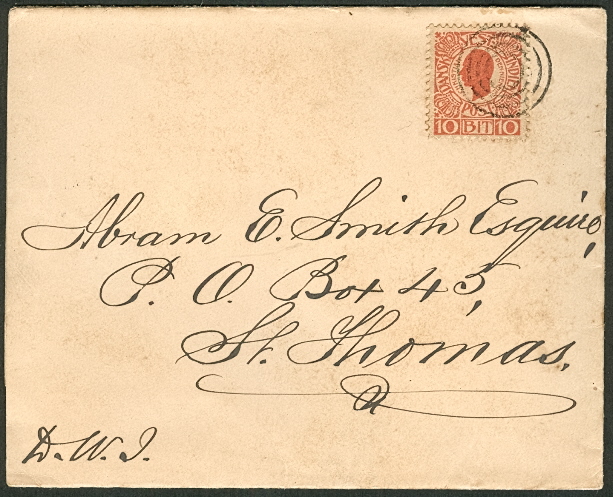 DANSK VESTINDIEN
POST
10 BIT 10
Abram E. Smith Esquire,
P. O. Box 45,
St. Thomas.
D.W.I.